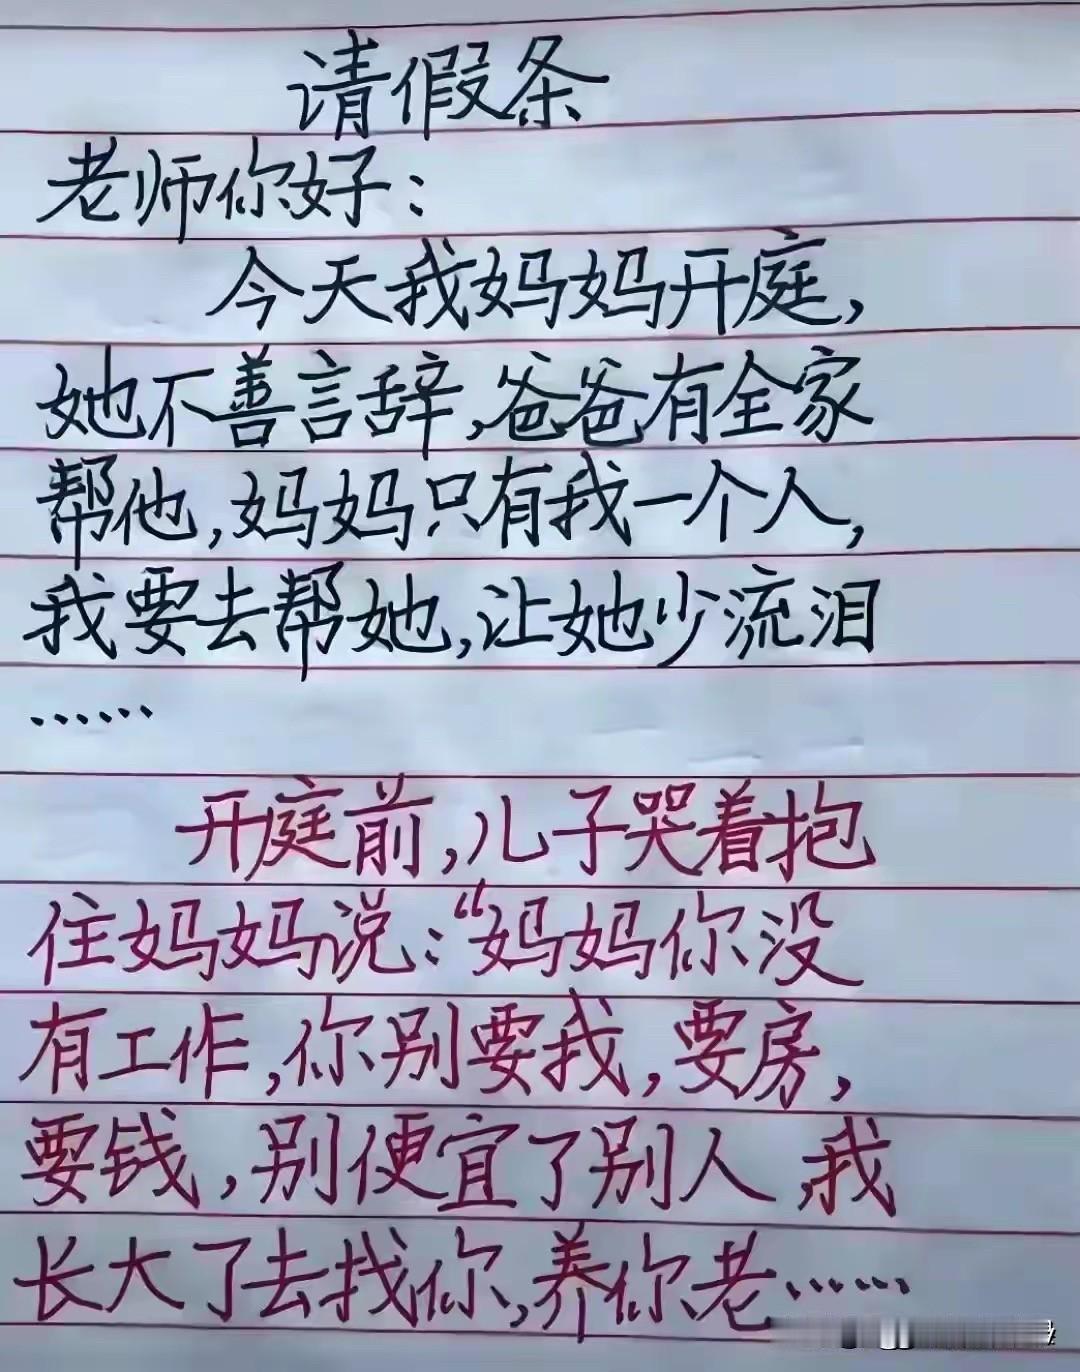 请假条
老师你好：
今天我妈妈开庭，
她不善言辞，爸爸有全家
帮他，妈妈只有我一个人，
我要去帮她，让她少流泪
……
开庭前，儿子哭着抱
住妈妈说：“妈妈你没
有工作，你别要我，要房，
要钱，别便宜了别人，我
长大了去找你，养你老……